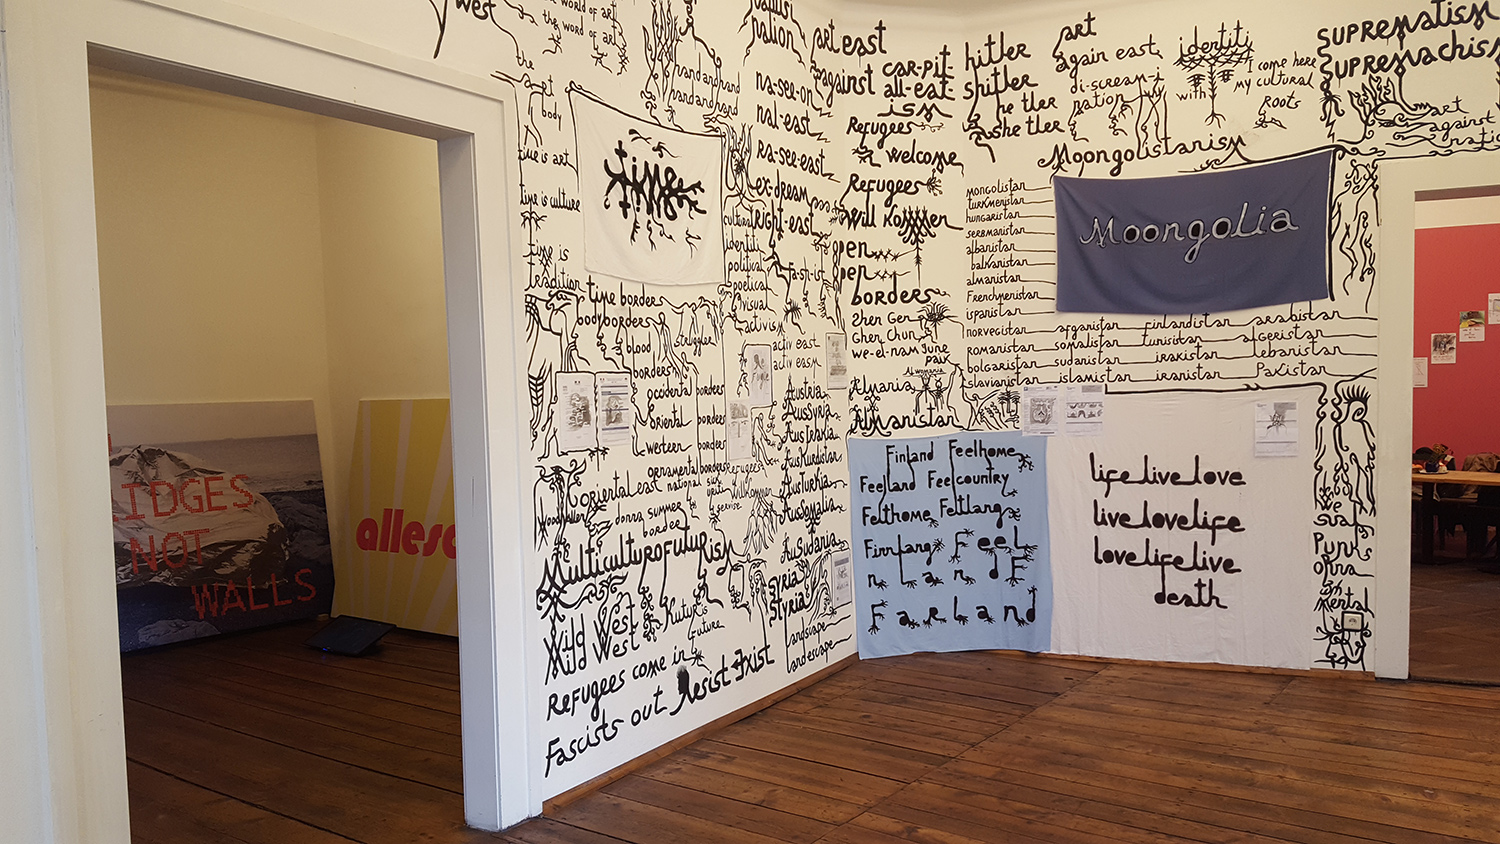 west
the world of art
the word of art
the art
body
time is art
time is culture
time is
tradition
hand and hand
hand and hand
time
time borders
body borders
blood
borders
struggle
occidental borders
oriental borders
western borders
ornamental borders
oriental east
national
donna summer
border
Multiculturofuturism
Wild West
Mild West
Kutur is
Future
Refugees come in
Fascists out
Resist Exist
nation
na-see-on
nal-east
Ra-see-east
ex-dream
Right-east
cultural
identiti
political
poetical
visual
activism
Fa-sh-ist
activ east
activ easm
Austria
AusSyria
Auskurdistan
Austurhia
Ausomalia
Ausudania
syria
Styria
landscape
landescape
art east
against
car-pit
all-eat
ism
Refugees
welcome
Refugees
Will Kommen
open
open
borders
Zhen Gen
Ghen Chun
we-el-nam June
paik
Almania
Alwomania
Almanistan
hitler
shitler
he tler
she tler
art
again east
di-scream-i
nation
identiti
with
come here
my cultural
Roots
SUPREMATISM
SUPREMACHISM
art
against
Moongolistanism
mongolistan
turkmenistan
hungaristan
serbmanistan
albanistan
balkanistan
almanistan
Frenchmenistan
ispanistan
norvegistan afganistan finlandistan arabistan
romanistan somalistan tunisistan algeristan
bolgaristan sudanistan irakistan lebanistan
slavianistan islamistan iranistan Pakistan
Moongolia
Finland Feelhome
Feelland Feelcountry
Felthome Feltlang
Finnlang Feel
Farland
life live love
live love life
love life live
death
We
Punks
mental
BRIDGES
NOT
WALLS